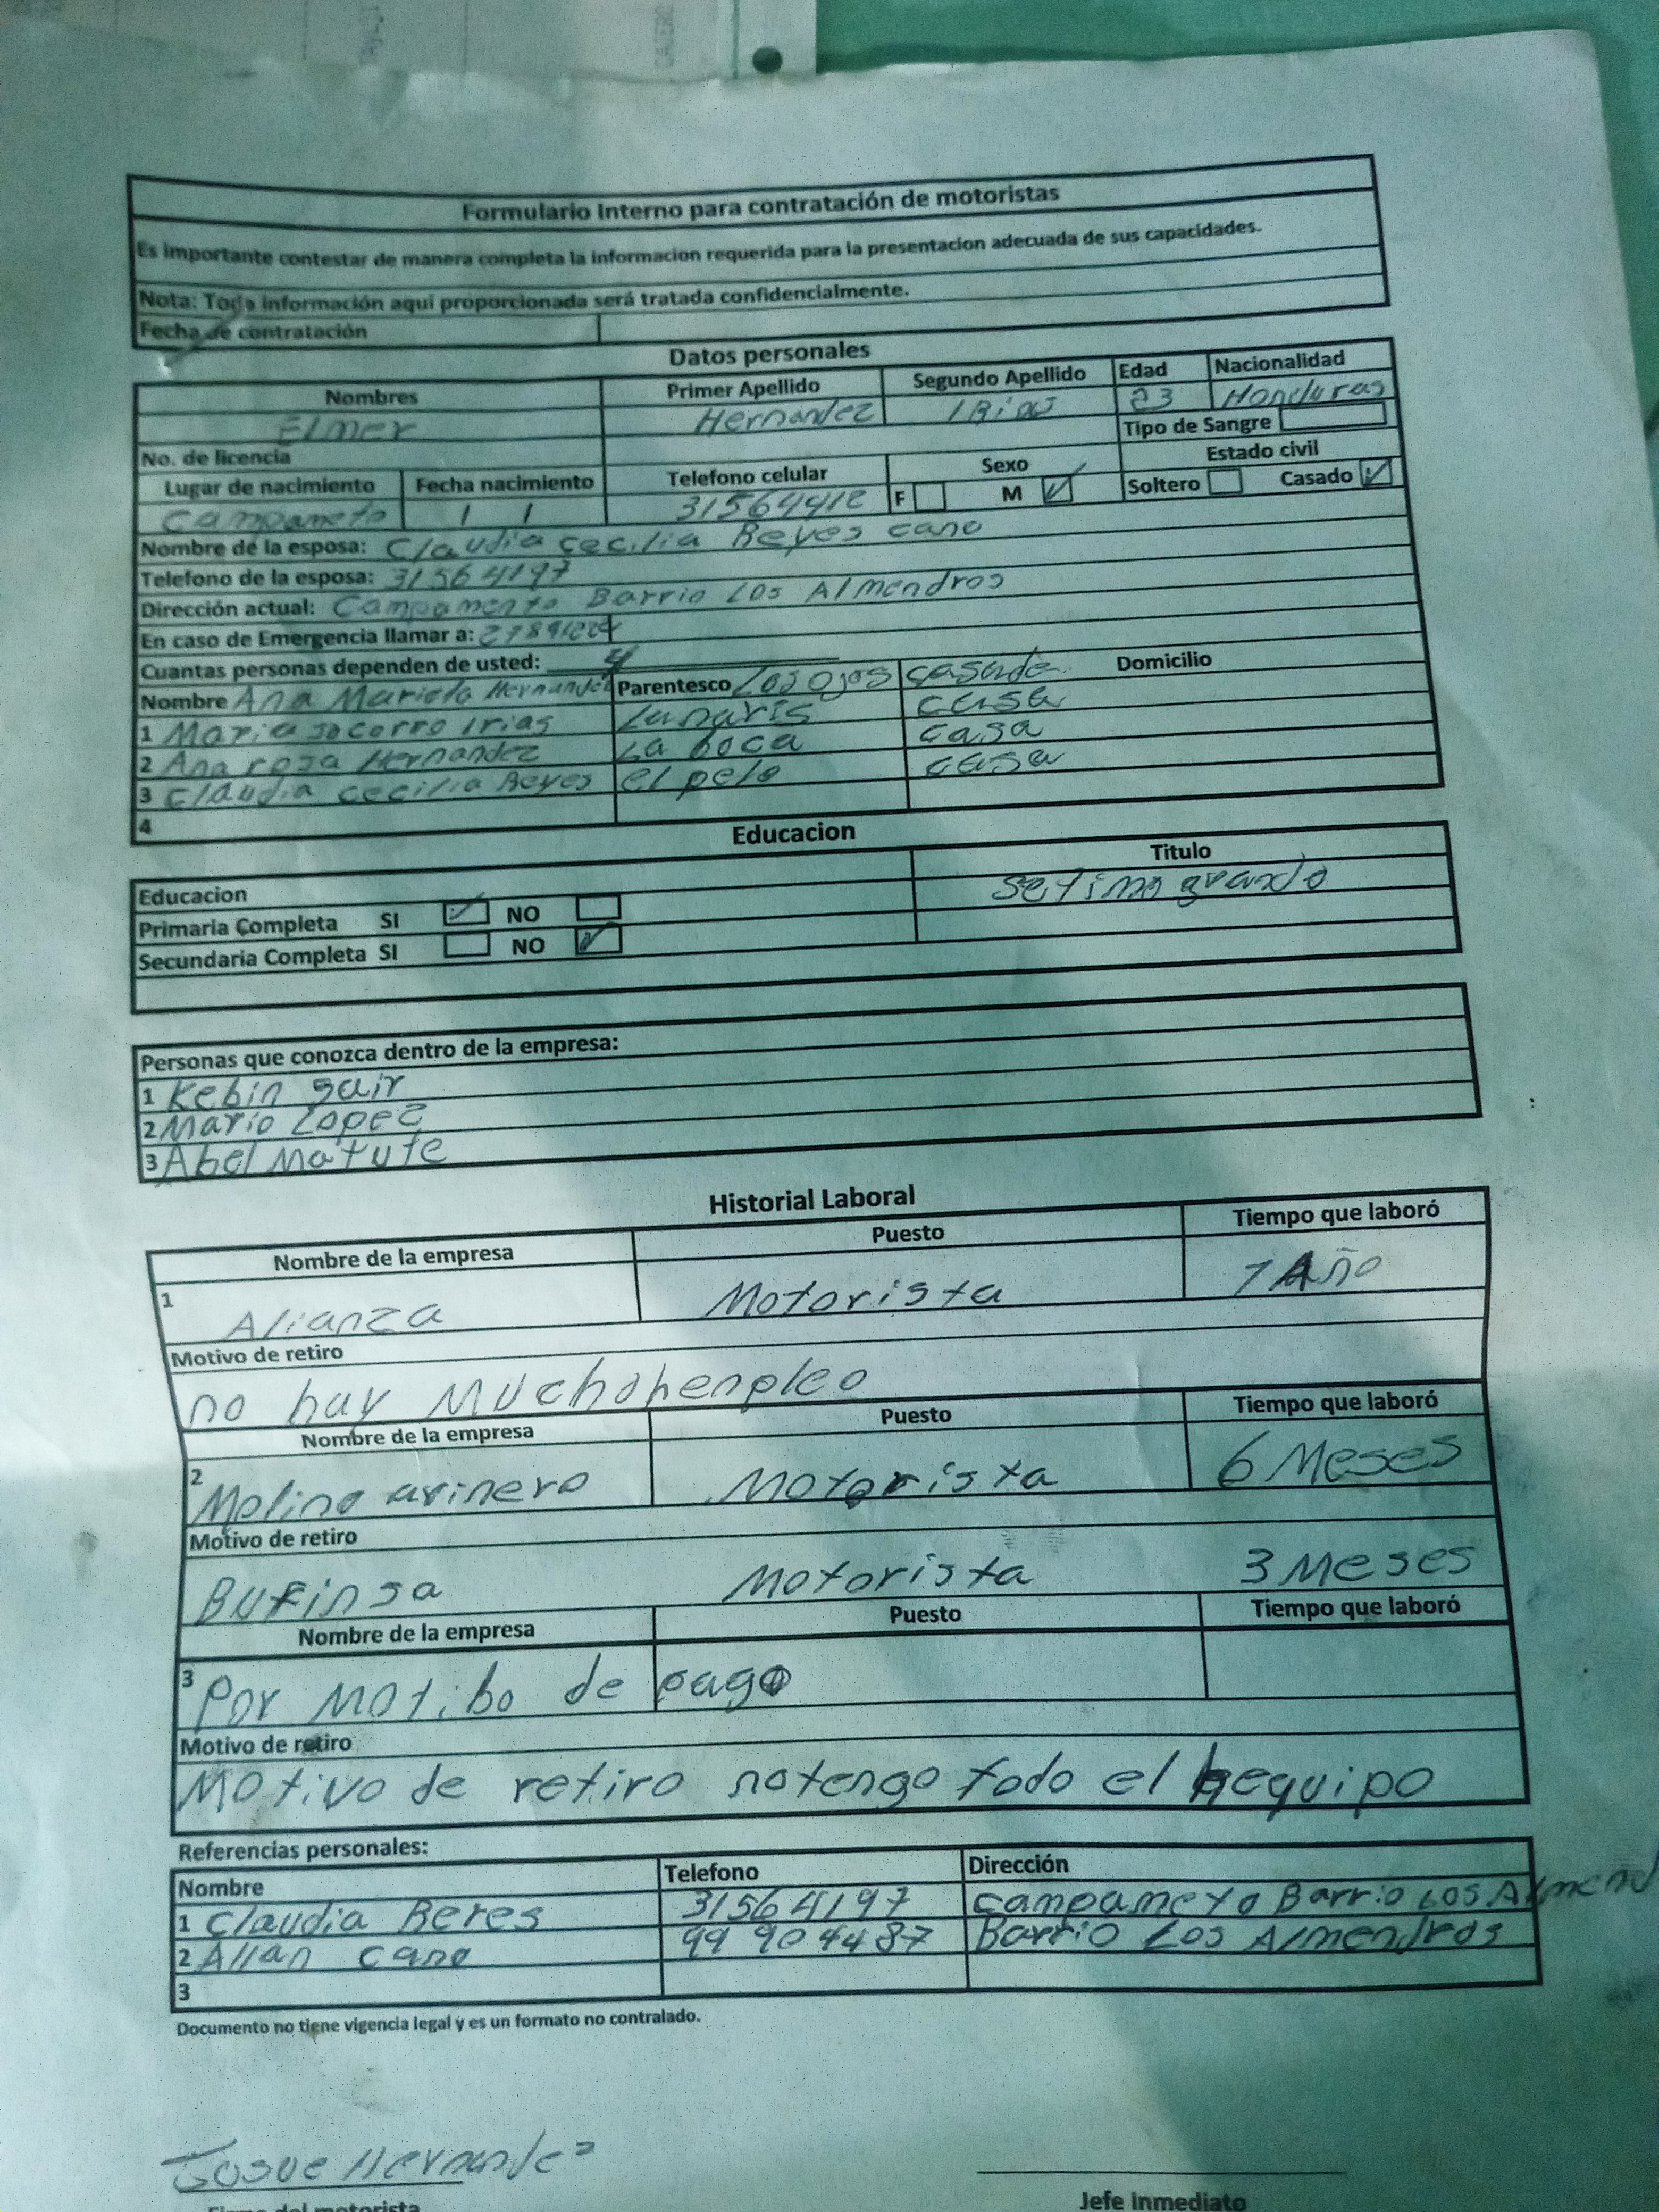 Formulario Interno para contratación de motoristas
Es importante contestar de manera completa la informacion requerida para la presentacion adecuada de sus capacidades.
Nota: Toda información aquí proporcionada será tratada confidencialmente.
Fecha de contratación
Datos personales
Nombres Primer Apellido Segundo Apellido Edad Nacionalidad
Elmer Hernandez 23 Honduras
No. de licencia Tipo de Sangre
Lugar de nacimiento Fecha nacimiento Telefono celular Sexo Estado civil
Campameto / / 31564412 F M Soltero Casado
Nombre de la esposa: Claudia Cecilia Reyes cano
Telefono de la esposa: 31564197
Dirección actual: Campamento Barrio Los Almendros
En caso de Emergencia llamar a: 27891224
Cuantas personas dependen de usted: 4
Nombre Ana Mariela Hernandez Parentesco Los ojos casade Domicilio
1 Maria socorro Irias Lunaris casa
2 Ana rosa Hernandez La boca casa
3 Claudia cecilia Reyes el pelo casa
4
Educacion
Educacion Titulo
Primaria Completa SI NO Setimo grando
Secundaria Completa SI NO
Personas que conozca dentro de la empresa:
1 Kebin gair
2 Mario Lopez
3 Abel Matute
Historial Laboral
Nombre de la empresa Puesto Tiempo que laboró
1 Alianza Motorista 1 Año
Motivo de retiro
no hay Muchohenpleo
Nombre de la empresa Puesto Tiempo que laboró
2 Molino arinero Motorista 6 Meses
Motivo de retiro
Bufinsa Motorista 3 Meses
Nombre de la empresa Puesto Tiempo que laboró
3 Por Motibo de pago
Motivo de retiro
Motivo de retiro notengo todo el hequipo
Referencias personales:
Nombre Telefono Dirección
1 Claudia Reres 31564197 campameto Barrio Los Almend
2 Allan cano 99904487 Barrio Los Almendros
3
Documento no tiene vigencia legal y es un formato no contralado.
Josue Hernandez
Firma del motorista Jefe Inmediato